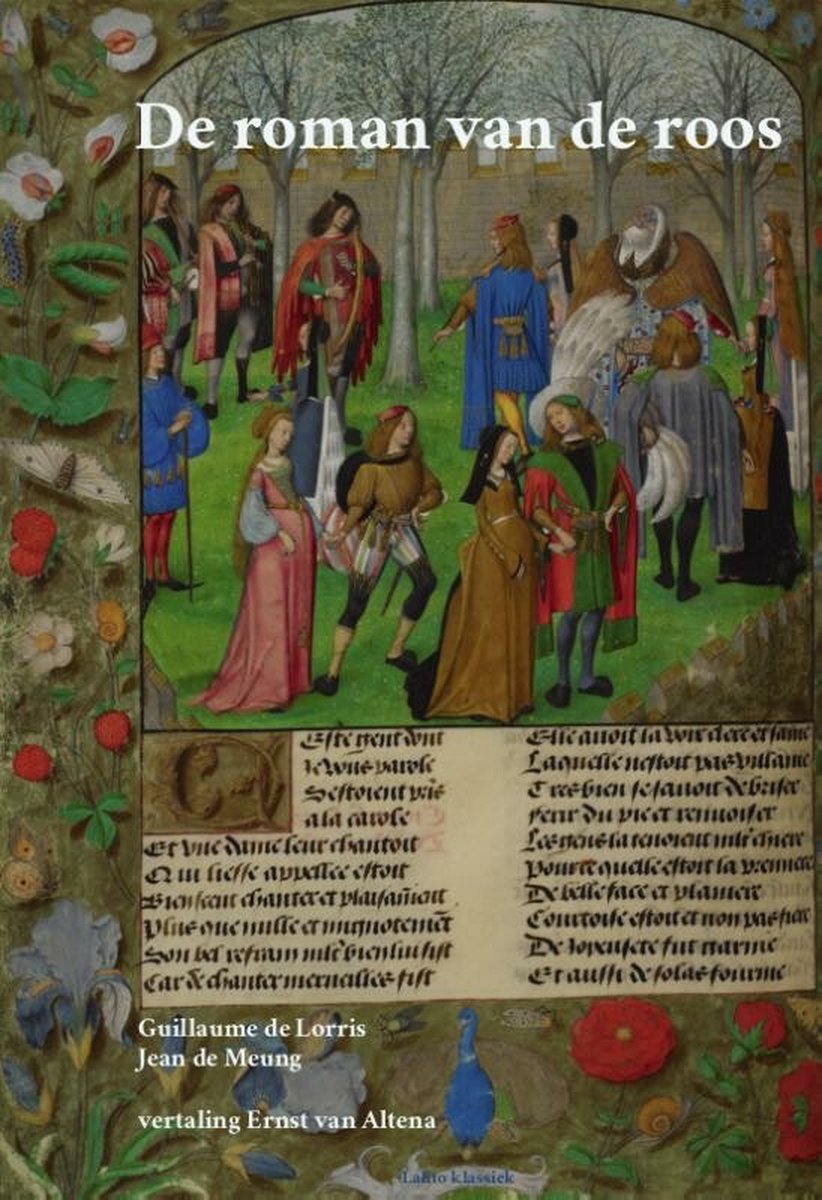 De roman van de roos
Ceste gent dont
je vous parole
Sestoient pris
a la carole
Et vne dame leur chantoit
Qui liesse appellee estoit
Bien sceut chanter et plaisāment
Plus que nulle et mignotemēt
Son bel refrain mlt bien lui sist
Car de chanter merueilles fist
Elle auoit la voix clere et saine
Laquelle nestoit pas villaine
Tres bien se sauoit debriser
ferir du pie et renuoiser
Les gens la tenoient mlt chiere
pource quelle estoit la premiere
De belle face et planiere
Courtoise estoit et non pas fiere
De
Et aussi de solas fourme
Guillaume de Lorris
Jean de Meung
vertaling Ernst van Altena
Lalito klassiek